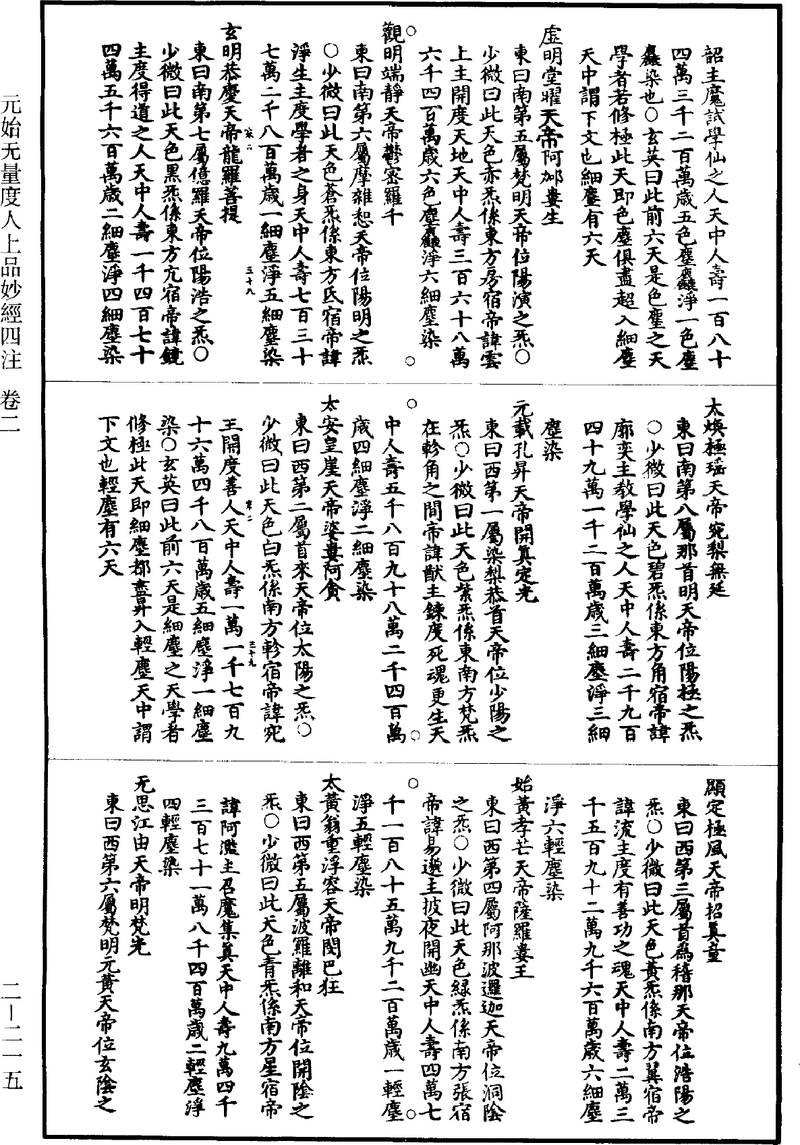 詔主魔試學仙之人天中人壽一百八十
四萬三千二百萬歲五色塵麤淨一色塵
麤染也○玄英曰此前六天是色塵之天
學者若修極此天即色塵俱盡超入細塵
天中謂下文也細塵有六天
虛明堂曜天帝阿邲婁生
東曰南第五屬梵明天帝位陽演之炁○
少微曰此天色赤炁係東方房宿帝諱雲
上主開度天地天中人壽三百六十八萬
六千四百萬歲六色塵麤淨六細塵染
觀明端靜天帝鬱密羅千
東曰南第六屬摩雜恕天帝位陽明之炁
○少微曰此天色蒼炁係東方氐宿帝諱
淨生主度學者之身天中人壽七百三十
七萬二千八百萬歲一細塵淨五細塵染
玄明恭慶天帝龍羅菩提
東曰南第七屬億羅天帝位陽浩之炁○
少微曰此天色黑炁係東方亢宿帝諱鏡
主度得道之人天中人壽一千四百七十
四萬五千六百萬歲二細塵淨四細塵染
太煥極瑶天帝宛梨無延
東曰南第八屬那首明天帝位陽極之炁
○少微曰此天色碧炁係東方角宿帝諱
廓奕主教學仙之人天中人壽二千九百
四十九萬一千二百萬歲三細塵淨三細
塵染
元載孔昇天帝開真定光
東曰西第一屬染梨恭首天帝位少陽之
炁○少微曰此天色紫炁係東南方梵炁
在軫角之間帝諱猷主鍊度死魂更生天
中人壽五千八百九十八萬二千四百萬
歲四細塵淨二細塵染
太安皇崖天帝婆婁阿貪
東曰西第二屬首來天帝位太陽之炁○
少微曰此天色白炁係南方軫宿帝諱宛
王開度善人天中人壽一萬一千七百九
十六萬四千八百萬歲五細塵淨一細塵
染○玄英曰此前六天是細塵之天學者
修極此天即細塵都盡昇入輕塵天中謂
下文也輕塵有六天
顯定極風天帝招真童
東曰西第三屬首爲稽那天帝位浩陽之
炁○少微曰此天色黄炁係南方翼宿帝
諱流主度有善功之魂天中人壽二萬三
千五百九十二萬九千六百萬歲六細塵
淨六輕塵染
始黄孝芒天帝薩羅婁王
東曰西第四屬阿那波邏迦天帝位洞陰
之炁○少微曰此天色緑炁係南方張宿
帝諱易邈主披夜開幽天中人壽四萬七
千一百八十五萬九千二百萬歲一輕塵
淨五輕塵染
太黄翁重浮容天帝閔巴狂
東曰西第五屬波羅離和天帝位開陰之
炁○少微曰此天色青炁係南方星宿帝
諱阿濫主召魔集真天中人壽九萬四千
三百七十一萬八千四百萬歲二輕塵淨
四輕塵染
无思江由天帝明梵光
東曰西第六屬梵明元黄天帝位玄陰之
元始无量度人上品妙經四注 卷二
二—二一五